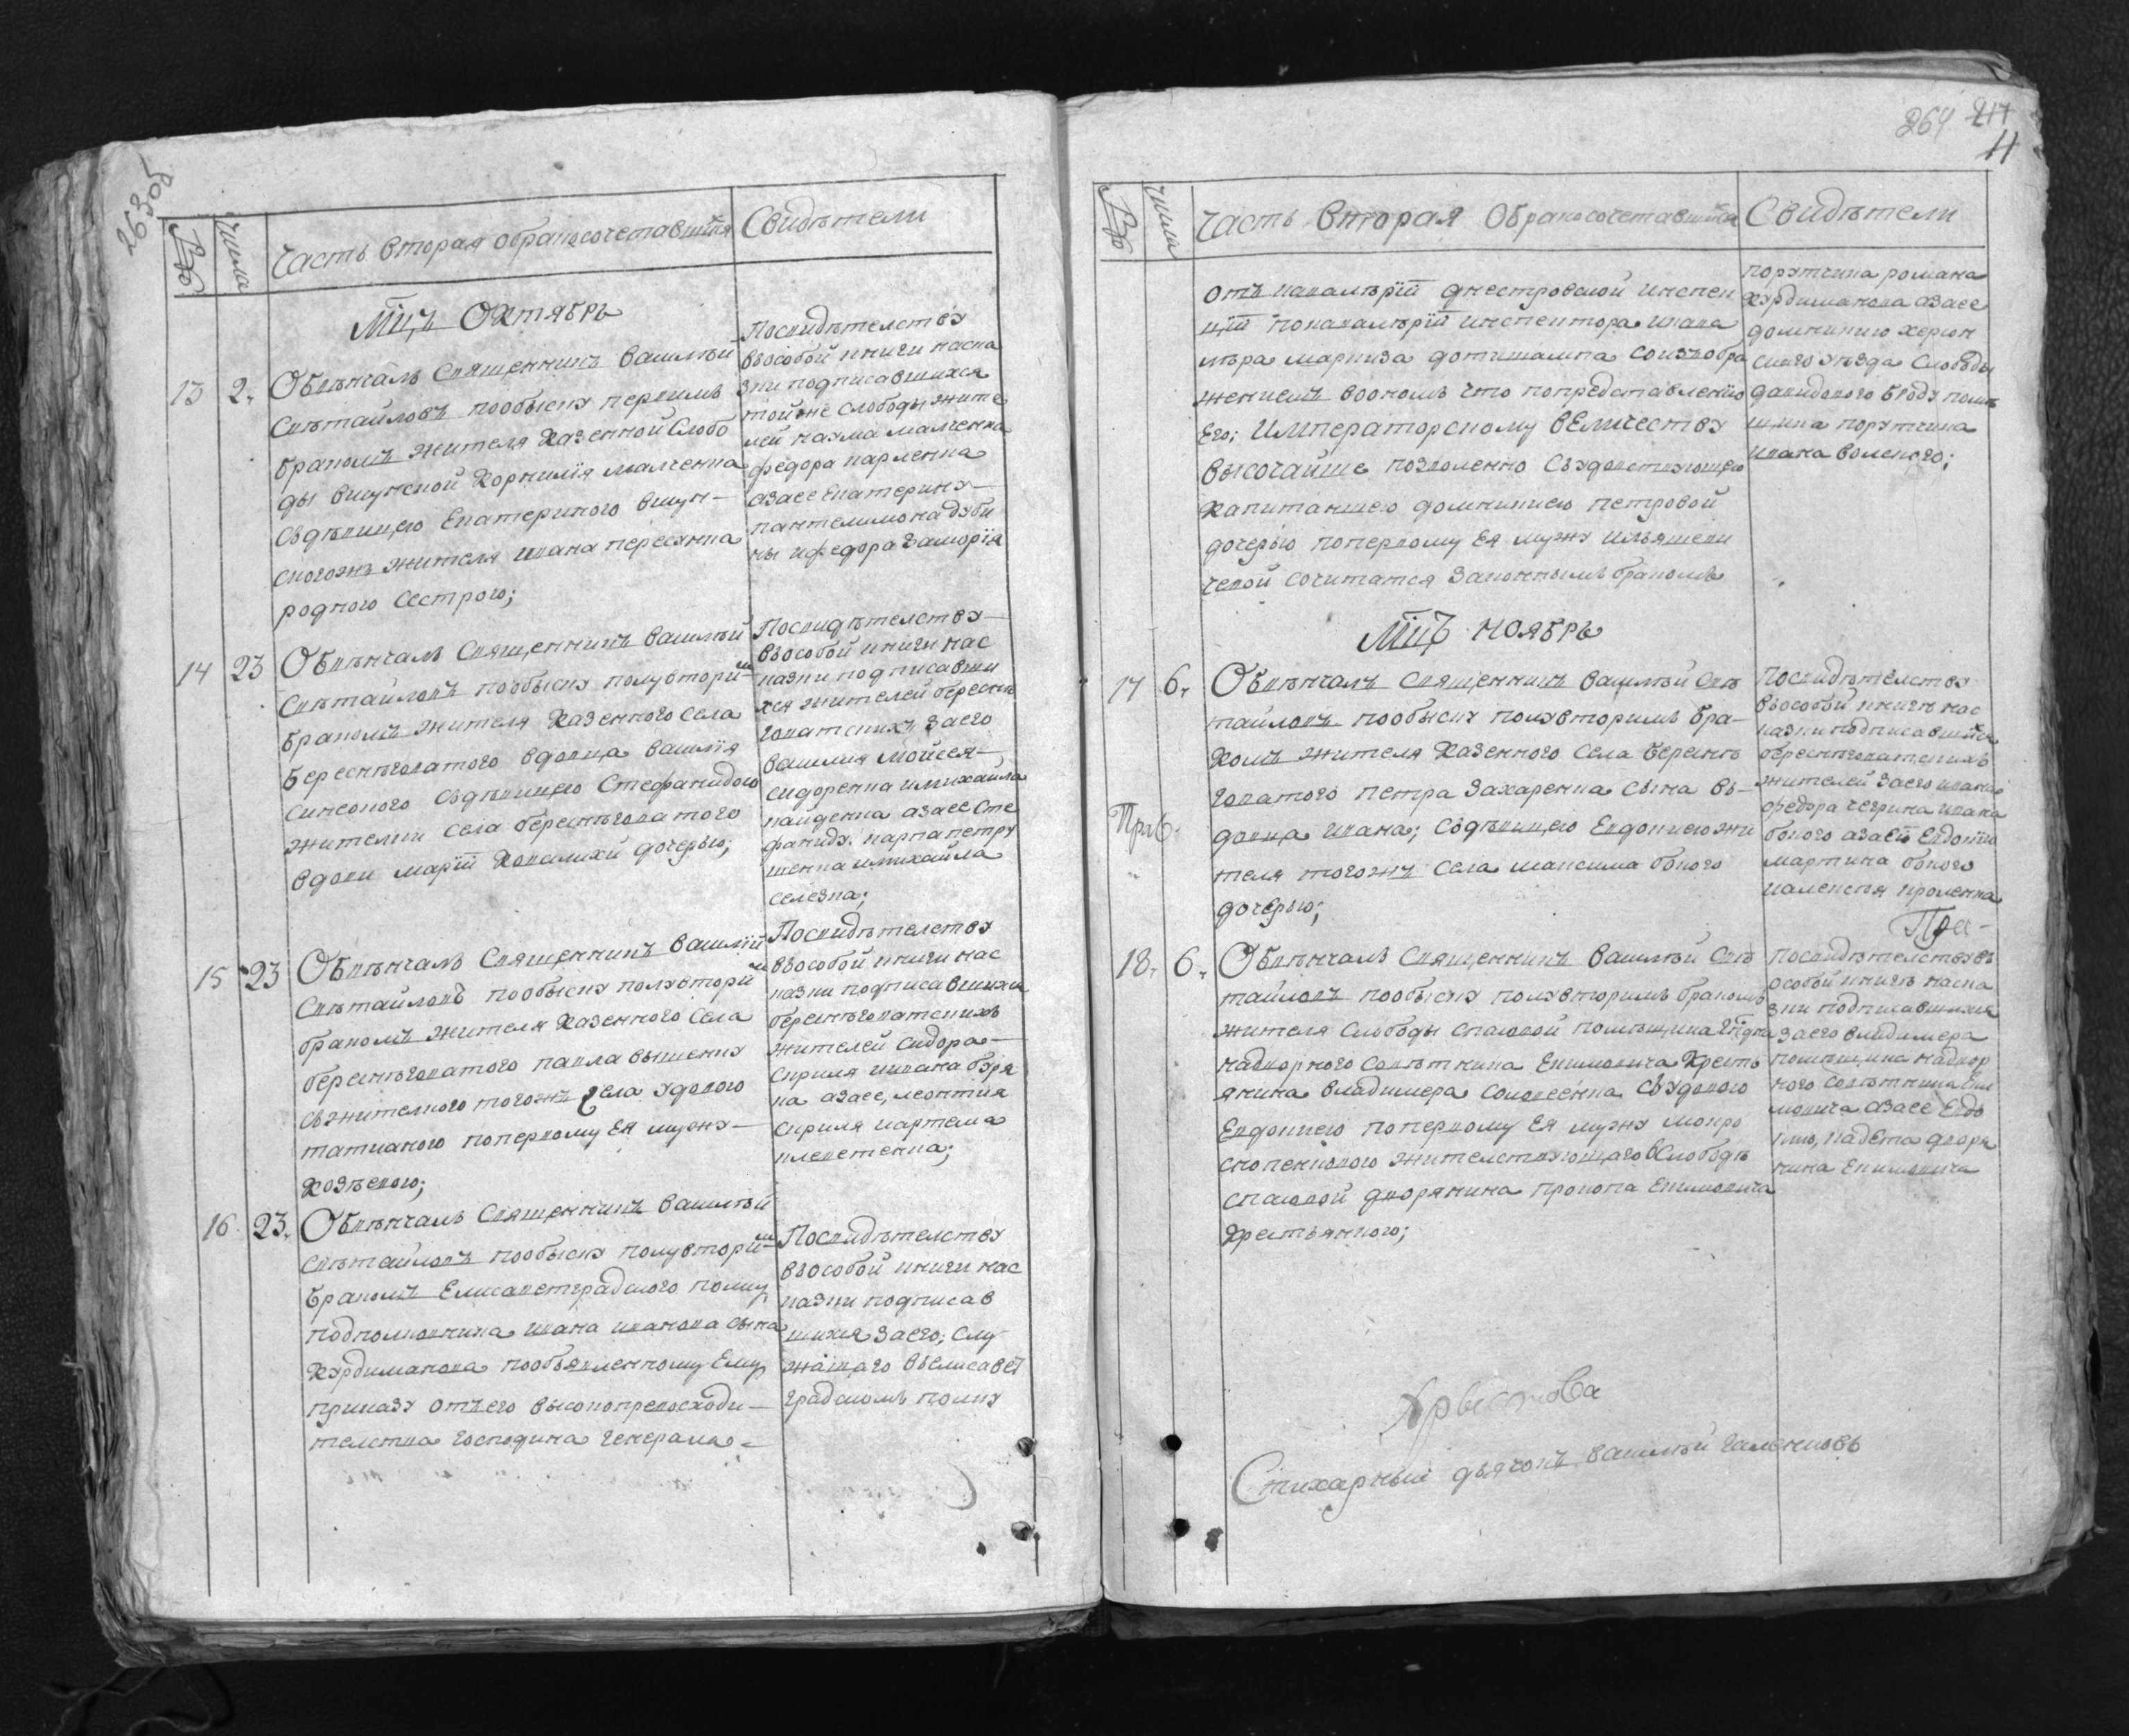 263об
№
Числа
Часть вторая обракосочетавшихся
Свидѣтели
Мцъ Октябрь
13 2.
Обвѣнчалъ Священникъ Василий
Свѣтайловъ пообыску первимъ
бракомъ жителя Казенной Слобо
ды вишукской Корнилия малченка
Сдѣвицею Екатериною вишун-
скогожъ жителя ивана пересунка
родною Сестрою;
Посвидѣтелству
въособой книги наска
зки подписавшихся
тойже слободы жите
лей наума малченка
федора карпенка
азаее екатерину
пантелимона дуби
ны ифедора Замория
14 23
Обвѣнчалъ Священникъ василий
Свѣтайловъ пообыску полувторимъ
бракомъ жителя Казенного Села
Берестѣговатого вдовца василия
Синсоного Сдѣвицею Стефанидою
жителки села берестѣговатого
вдови марїи Ковалихи дочерью;
Посвидѣтелству
въособой книги нас
казки подписавши
хся жителей берестѣ
говатскихъ Заего
василия мойсея
сидоренка имихайла
найденка азаее сте
фаниду карпа петру
шенка имихайла
селезна;
15 23
Обвѣнчалъ Священникъ василий
Свѣтайловъ пообыску полувторимъ
бракомъ жителя Казенного Села
берестѣговатого павла
съжителкою тогожъ села удовою
татианою поперьвому Ея мужу
Козѣевою;
Посвидѣтелству
въособой книги нас
казки подписавшихся
берестѣговатскихъ
жителей Сидора
Скриля ивана буря
ка азаее, леонтия
Скриля иартема
плететенка;
16 23.
Обвѣнчалъ Священникъ василий
Свѣтайловъ пообыску полувторимъ
бракомъ Елисаветградского полку
подполковника ивана иванова сына
Курдиманова пообъявленному Ему
приказу отъего высокопревосходи-
телства господина генерала
Посвидѣтелству
въособой книги нас
казки подписав
шихся заего; слу
жащаго въелисавет
градскомъ полку
264
11
№
Числа
Часть вторая Обракосочетавшихся
Свидѣтели
отъ кавалѣрїи днестровской инспек
цїи покавалѣрїи инспектора икава
лѣра маркиза дотишампа соизобра
жениемъ воономъ что попредставлению
Его; Императорскому вЕличеству
высочайше позволенно Съудовствующею
Капитаншею домникиею петровой
дочерью поперьвому Ея мужу ильяшеви
чевой сочитатся Законнымъ бракомъ
порутчика романа
Курдиманова азаее
домникию херсон
скаго уѣзда Слободы
давидового броду помѣ
щика порутчика
ивана воленого;
Мцъ Ноябрь
17 6.
Обвѣнчалъ Священникъ василий Свѣ
тайловъ пообыску полувторимъ бра-
комъ жителя Казенного Села берестѣ
говатого петра Захаренка Сына въ-
довца ивана; Сдѣвицею Евдокиею жи
теля тогожъ Села максима бокого
дочерью;
Посвидѣтелству
въособой книгѣ нас
казки подписавшихся
берестѣговатскихъ
жителей заего ивана
федора чегрина ивана
бокого азаеѣ Евдокию
мартина бокого
иалексея
18. 6.
Обвѣнчалъ Священникъ василий Свѣ
тайловъ пообыску полувторимъ бракомъ
жителя слободы спасовой помѣщика
надворного Совѣтника Екимовича Кресть
янина владимера Соловеенка Съудовою
Евдокиею поперьвому Ея мужу мокро
жителствующаго вСлободѣ
спасовой дворянина прокопа Екимовича
Крестьянкою;
посвидѣтелству въ
особой книгѣ наска
зки подписавшихся
заего владимера
помѣщика надвор
ного совѣтника Еки
мовича азаее Евдо
кию, кадета дворя
нина Екимовича
Стихарный дьячокъ василий галенковъ